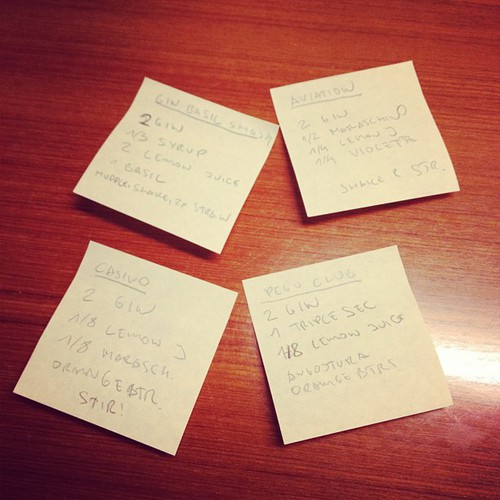 GIN BASIL SMASH
2 GIN
1/3 SYRUP
2 LEMON JUICE
1 BASIL
MUDDLE, SHAKE, 2x STRAIN
AVIATION
2 GIN
1/2 MARASCHINO
1/4 LEMON J
1/4 VIOLETTE
SHAKE & STR.
CASINO
2 GIN
1/8 LEMON J
1/8 MARASCH.
ORANGE BTR.
STIR!
PEGU CLUB
2 GIN
1 TRIPLE SEC
1/8 LEMON JUICE
ANGOSTURA
ORANGE BTRS